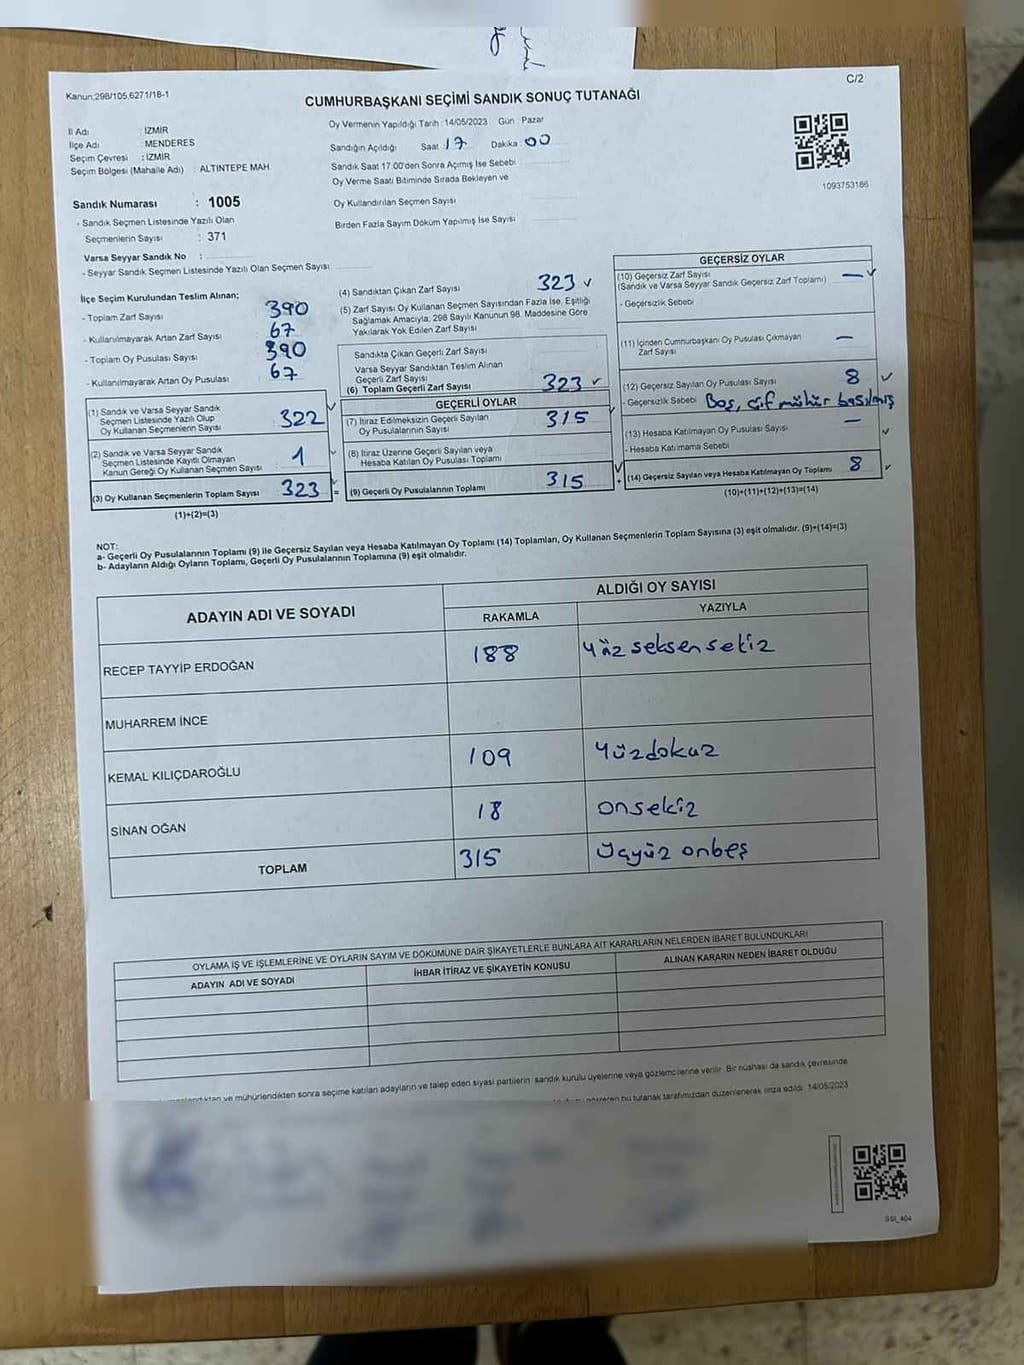 Kanun,298/105,6271/18-1
C/2
CUMHURBAŞKANI SEÇİMİ SANDIK SONUÇ TUTANAĞI
İl Adı : İZMİR
İlçe Adı : MENDERES
Seçim Çevresi : İZMİR
Seçim Bölgesi (Mahalle Adı) : ALTINTEPE MAH.
Oy Vermenin Yapıldığı Tarih : 14/05/2023 Gün : Pazar
Sandığın Açıldığı Saat 17 Dakika 00
Sandık Saat 17:00'den Sonra Açımış İse Sebebi
Oy Verme Saati Bitiminde Sırada Bekleyen ve
Oy Kullandırılan Seçmen Sayısı
Birden Fazla Sayım Döküm Yapılmış İse Sayısı
1093753186
Sandık Numarası : 1005
- Sandık Seçmen Listesinde Yazılı Olan
Seçmenlerin Sayısı : 371
Varsa Seyyar Sandık No :
- Seyyar Sandık Seçmen Listesinde Yazılı Olan Seçmen Sayısı:
İlçe Seçim Kurulundan Teslim Alınan;
- Toplam Zarf Sayısı 390
- Kullanılmayarak Artan Zarf Sayısı 67
- Toplam Oy Pusulası Sayısı 390
- Kullanılmayarak Artan Oy Pusulası 67
(1) Sandık ve Varsa Seyyar Sandık
Seçmen Listesinde Yazılı Olup
Oy Kullanan Seçmenlerin Sayısı 322
(2) Sandık ve Varsa Seyyar Sandık
Seçmen Listesinde Kayıtlı Olmayan
Kanun Gereği Oy Kullanan Seçmen Sayısı 1
(3) Oy Kullanan Seçmenlerin Toplam Sayısı 323
(1)+(2)=(3)
(4) Sandıktan Çıkan Zarf Sayısı 323
(5) Zarf Sayısı Oy Kullanan Seçmen Sayısından Fazla İse, Eşitliği
Sağlamak Amacıyla, 298 Sayılı Kanunun 98. Maddesine Göre
Yakılarak Yok Edilen Zarf Sayısı
Sandıkta Çıkan Geçerli Zarf Sayısı
Varsa Seyyar Sandıktan Teslim Alınan
Geçerli Zarf Sayısı
(6) Toplam Geçerli Zarf Sayısı 323
GEÇERLİ OYLAR
(7) İtiraz Edilmeksizin Geçerli Sayılan
Oy Pusulalarının Sayısı 315
(8) İtiraz Üzerine Geçerli Sayılan veya
Hesaba Katılan Oy Pusulası Toplamı
(9) Geçerli Oy Pusulalarının Toplamı 315
GEÇERSİZ OYLAR
(10) Geçersiz Zarf Sayısı
(Sandık ve Varsa Seyyar Sandık Geçersiz Zarf Toplamı) —
- Geçersizlik Sebebi
(11) İçinden Cumhurbaşkanı Oy Pusulası Çıkmayan
Zarf Sayısı —
(12) Geçersiz Sayılan Oy Pusulası Sayısı 8
- Geçersizlik Sebebi Boş, çif mühür basılmış
(13) Hesaba Katılmayan Oy Pusulası Sayısı —
- Hesaba Katılmama Sebebi
(14) Geçersiz Sayılan veya Hesaba Katılmayan Oy Toplamı 8
(10)+(11)+(12)+(13)=(14)
NOT:
a- Geçerli Oy Pusulalarının Toplamı (9) ile Geçersiz Sayılan veya Hesaba Katılmayan Oy Toplamı (14) Toplamları, Oy Kullanan Seçmenlerin Toplam Sayısına (3) eşit olmalıdır. (9)+(14)=(3)
b- Adayların Aldığı Oyların Toplamı, Geçerli Oy Pusulalarının Toplamına (9) eşit olmalıdır.
ADAYIN ADI VE SOYADI
ALDIĞI OY SAYISI
RAKAMLA YAZIYLA
RECEP TAYYİP ERDOĞAN 188 Yüz seksen sekiz
MUHARREM İNCE
KEMAL KILIÇDAROĞLU 109 Yüzdokuz
SİNAN OĞAN 18 onsekiz
TOPLAM 315 Üçyüz onbeş
OYLAMA İŞ VE İŞLEMLERİNE VE OYLARIN SAYIM VE DÖKÜMÜNE DAİR ŞİKAYETLERLE BUNLARA AİT KARARLARIN NELERDEN İBARET BULUNDUKLARI
ADAYIN ADI VE SOYADI İHBAR İTİRAZ VE ŞİKAYETİN KONUSU ALINAN KARARIN NEDEN İBARET OLDUĞU
ve mühürlendikten sonra seçime katılan adayların ve talep eden siyasi partilerin sandık kurulu üyelerine veya gözlemcilerine verilir. Bir nüshası da sandık çevresinde
bu tutanak tarafımızdan düzenlenerek imza edildi. 14/05/2023
SSİ_404